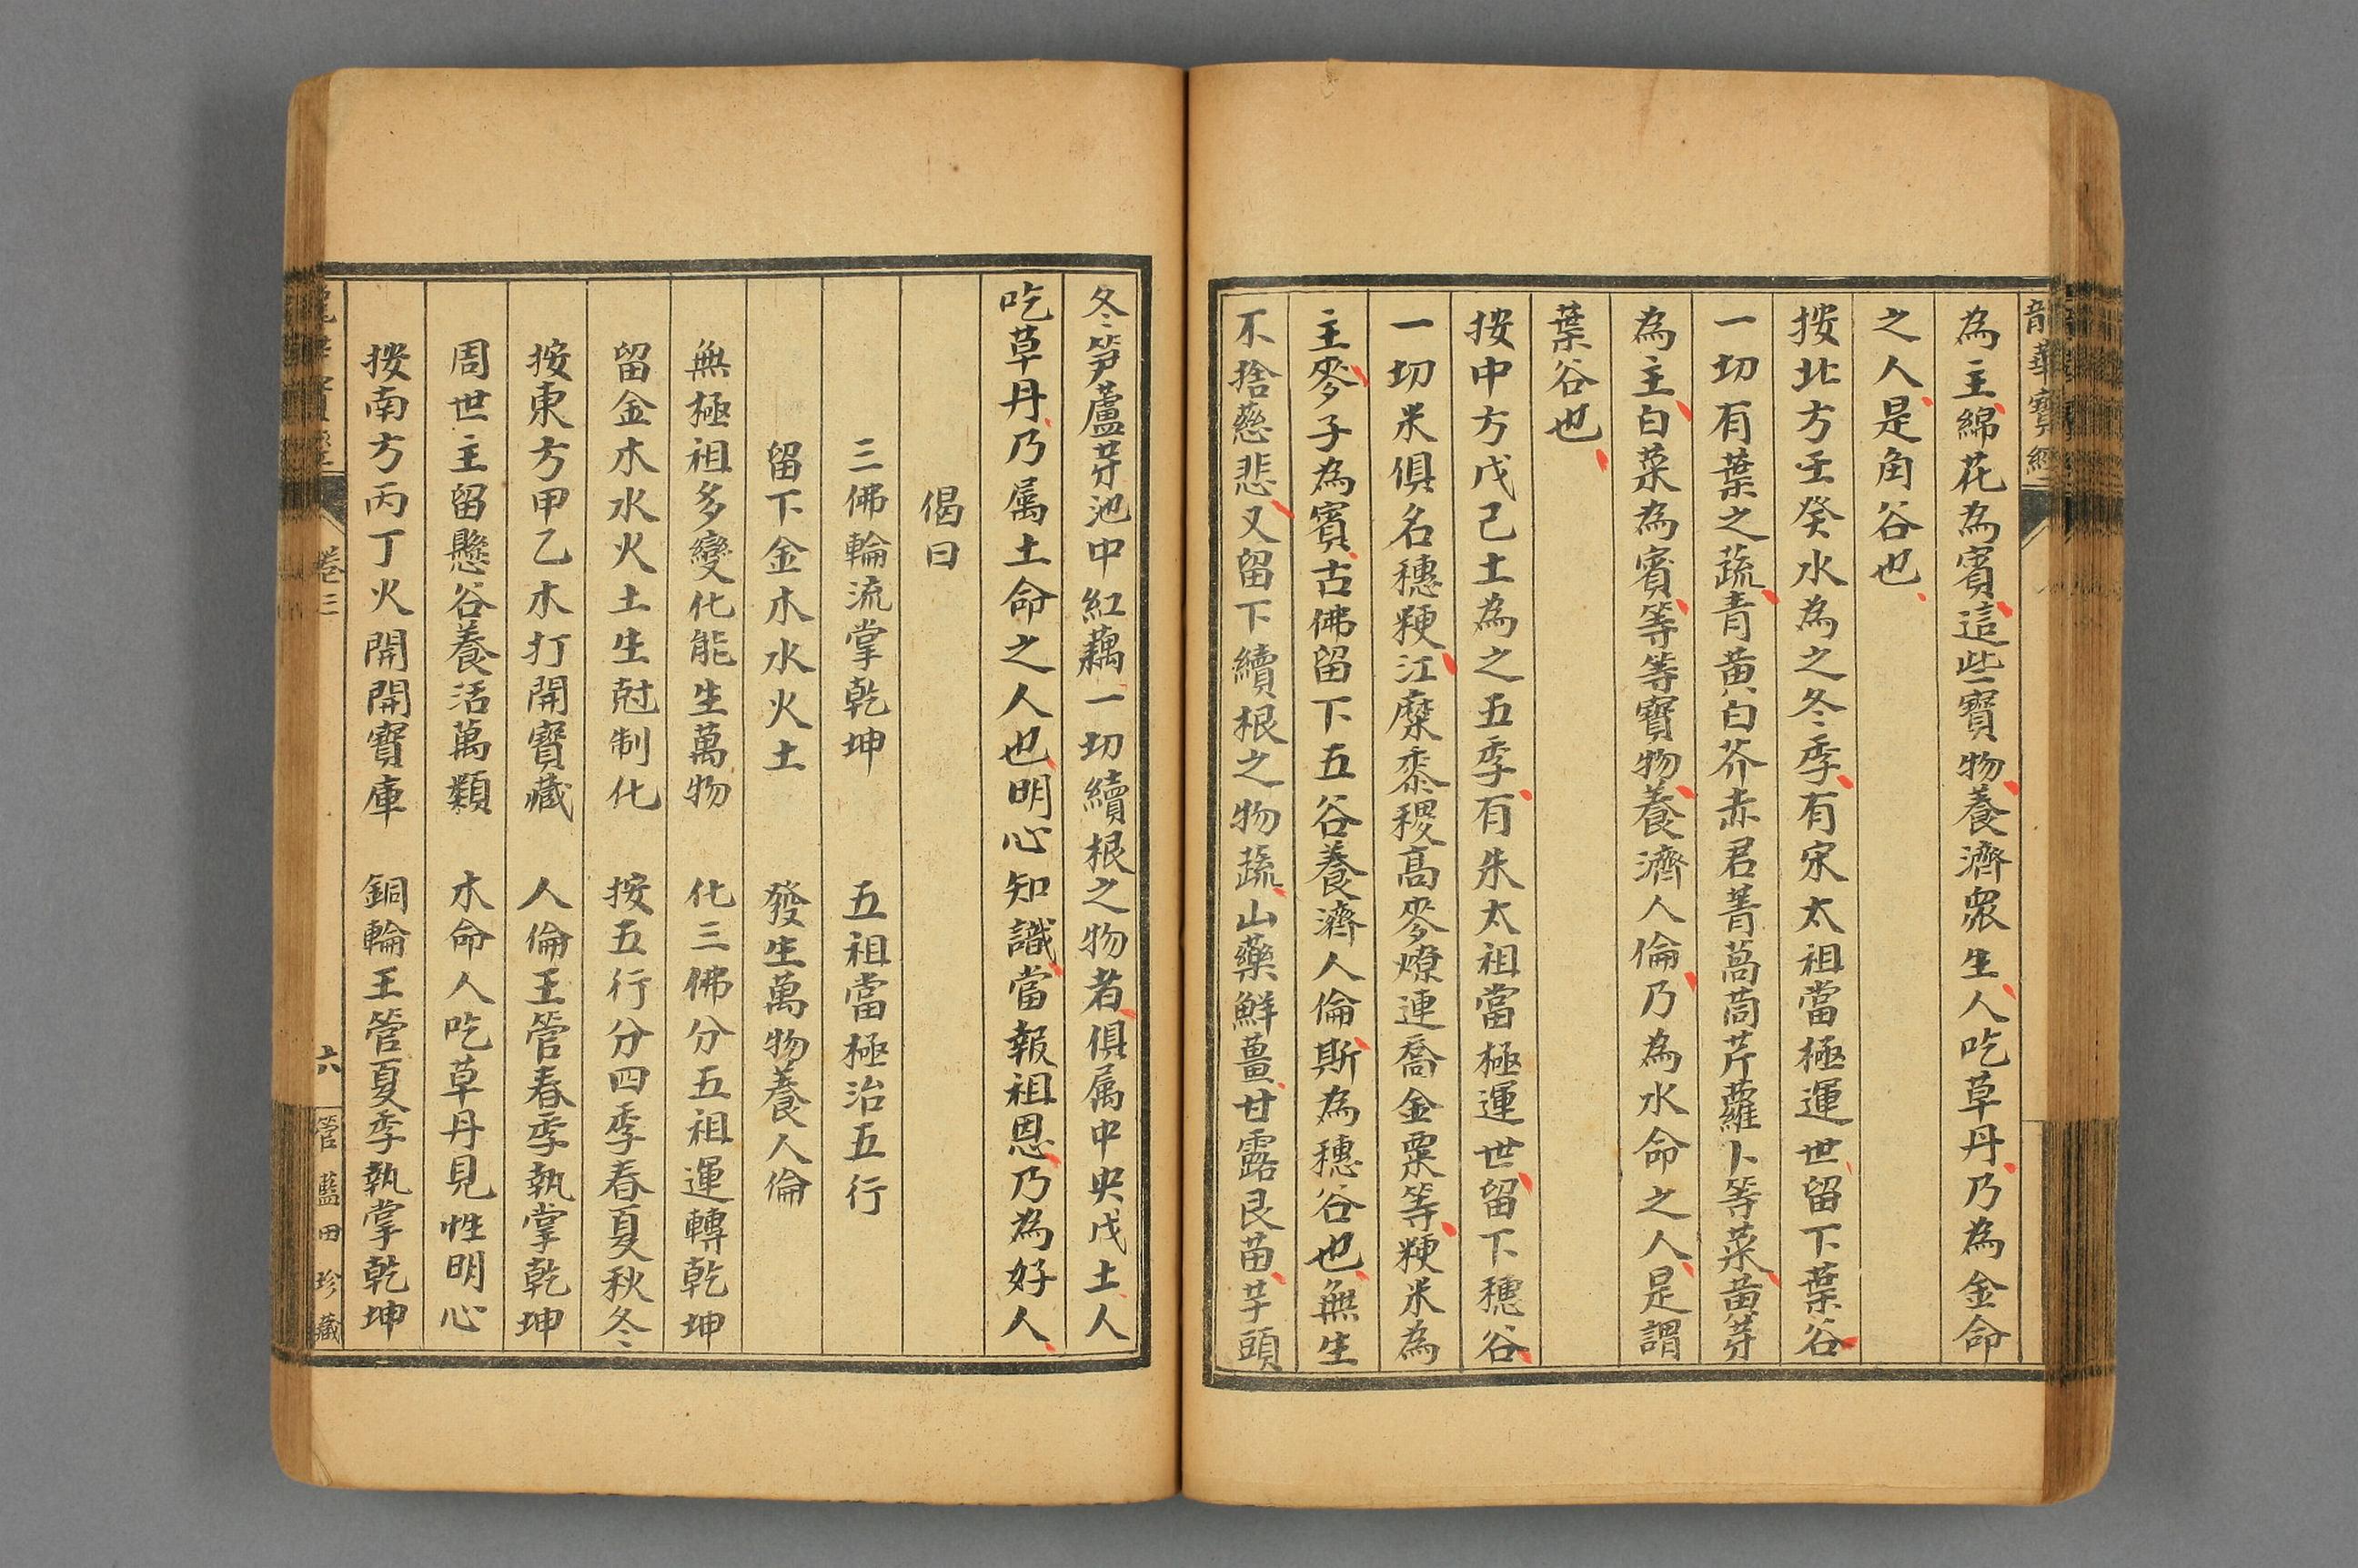 龍華寶經
為主綿花為賓這些寶物養濟眾生人吃草丹乃為金命
之人是角谷也
按北方壬癸水為之冬季有宋太祖當極運世留下葉谷
一切有葉之蔬青黃白芥赤君菁萵茼芹蘿卜等菜黃芽
為主白菜為賓等等寶物養濟人倫乃為水命之人是謂
葉谷也
按中方戊己土為之五季有朱太祖當極運世留下穗谷
一切米俱名穗粳江糜黍稷高麥燎連喬金粟等粳米為
主麥子為賓古佛留下五谷養濟人倫斯為穗谷也無生
不捨慈悲又留下續根之物蔬山藥鮮薑甘露艮苗芋頭
冬笋蘆芽池中紅藕一切續根之物者俱属中央戊土人
吃草丹乃屬土命之人也明心知識當報祖恩乃為好人
偈曰
三佛輪流掌乾坤 五祖當極治五行
留下金木水火土 發生萬物養人倫
無極祖多變化能生萬物 化三佛分五祖運轉乾坤
留金木水火土生尅制化 按五行分四季春夏秋冬
按東方甲乙木打開寶藏 人倫王管春季執掌乾坤
周世主留懸谷養活萬類 木命人吃草丹見性明心
按南方丙丁火開開寶庫 銅輪王管夏季執掌乾坤
卷三 六 管藍田珍藏